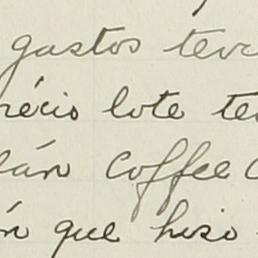 gastos tev
récio lote te
lán coffee C
n que hiso